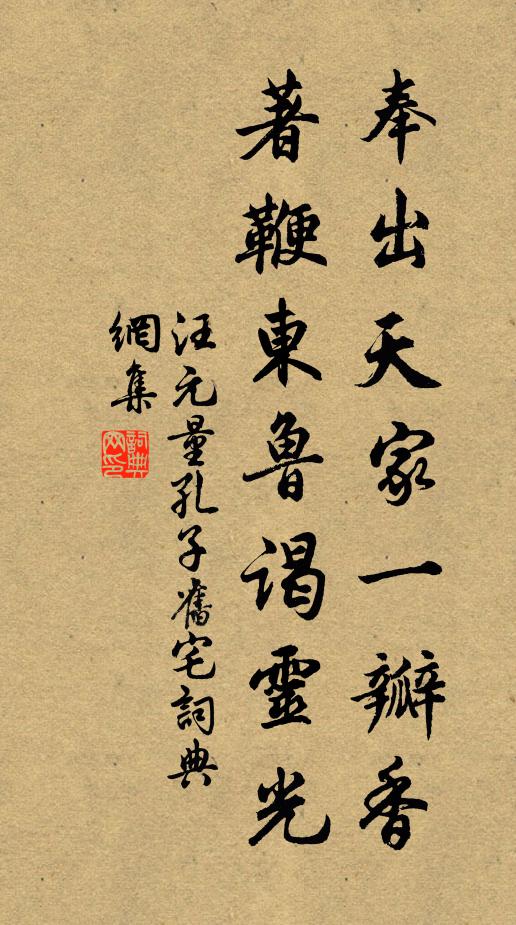 奉出天家一瓣香
著鞭東魯謁靈光
汪元量孔子舊宅詞典
網集
詞典
网印